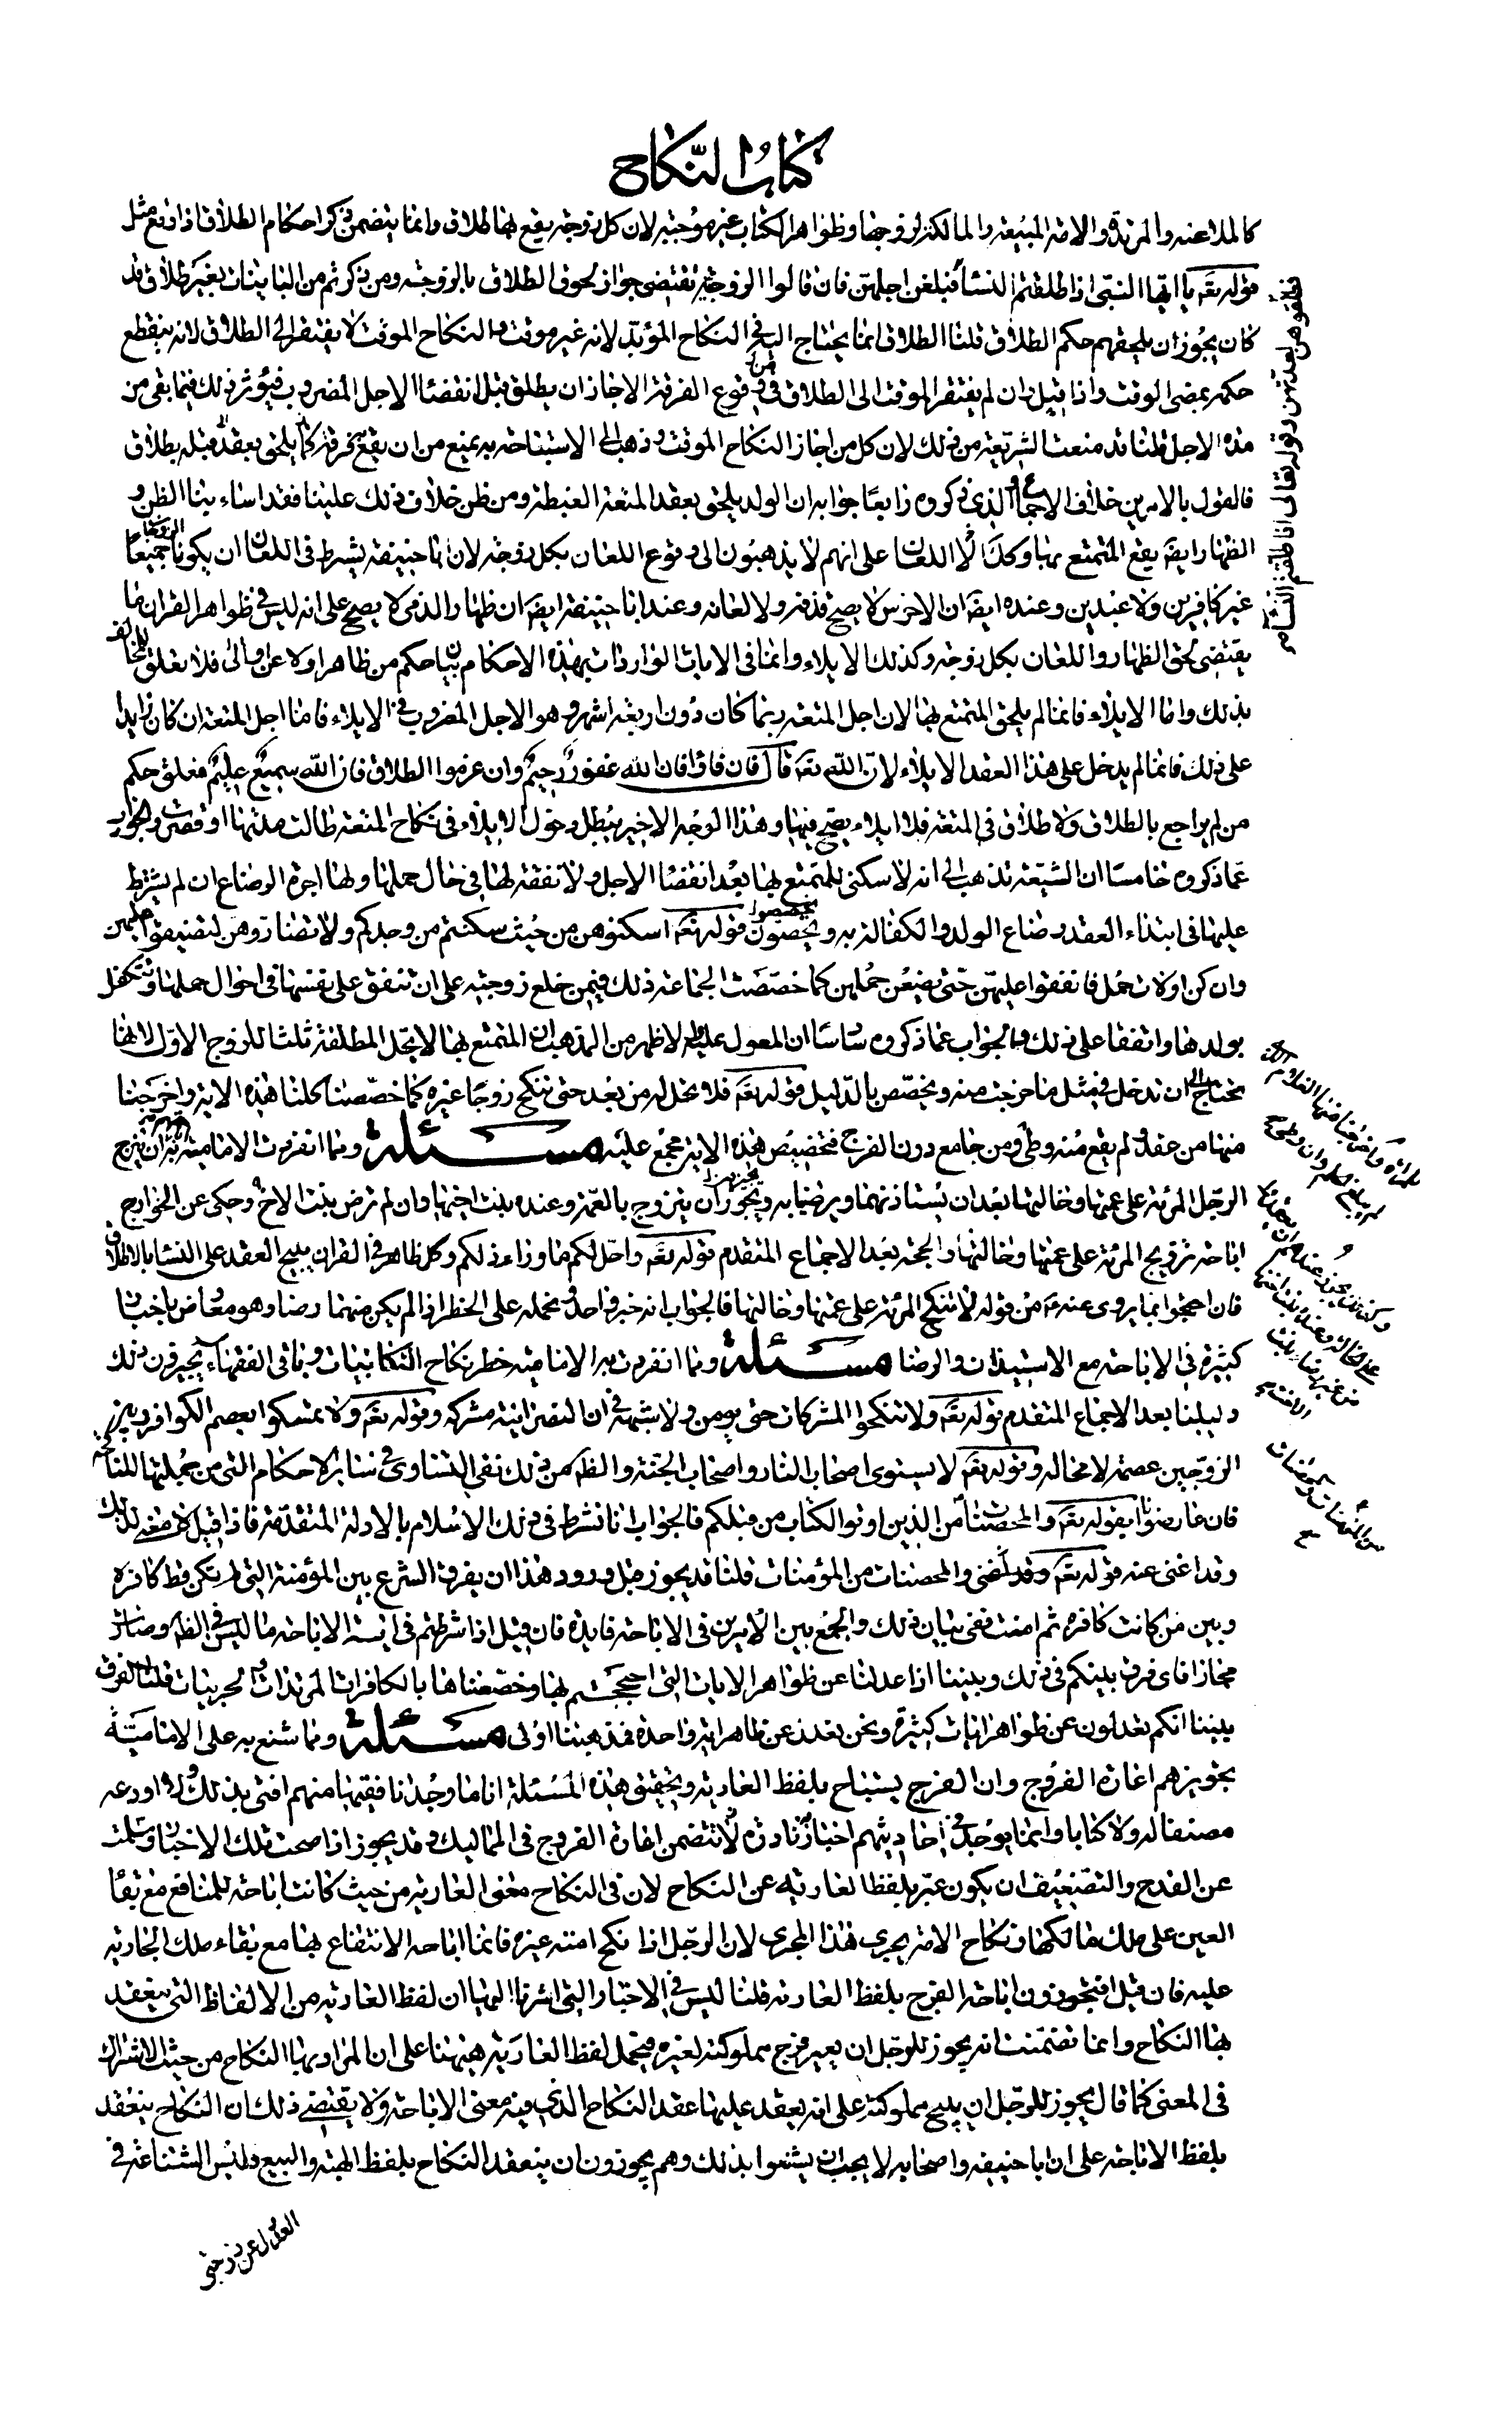 كتاب النكاح
كالملاعنة والمرتدة والامة المبيعة والمالكة لزوجها وظواهر الكتاب غير موجبة لان كل زوجة يقع بها طلاق وانما يتضمن ذكر احكام الطلاق اذا وقع مثل
قوله تعالى يا ايها النبي اذا طلقتم النساء فبلغن اجلهن فان قالوا الزوجية تقتضي جواز لحوق الطلاق بالزوجة ومن ذكرتم من البائنات بغير طلاق قد
كان يجوز ان يلحقهم حكم الطلاق قلنا الطلاق انما يحتاج اليه في النكاح المؤبد لانه غير موقت والنكاح الموقت لا يفتقر الى الطلاق لانه ينقطع
حكمه بمضى الوقت واذا قيل وان لم يفتقر الموقت الى الطلاق في وقوع الفرقة الا جاز ان يطلق قبل انقضاء الاجل المضروب فيؤثر ذلك فيما بقى من
مدة الاجل قلنا قد منعت الشريعة من ذلك لان كل من اجاز النكاح الموقت وذهب الى الاستباحة به يمنع من ان يقع فرقة قبله بطلاق
فالقول بالامرين خلاف الاجماع والذى ذكروه رابعا جوابه ان الولد يلحق بعقد المتعة ومن ظن خلاف ذلك علينا فقد اساء بنا الظن و
الظهار ايضا يقع بالمتمتع بها وكذلك اللعان على انهم لا يذهبون الى وقوع اللعان بكل زوجة لان ابا حنيفة يشرط في اللعان ان يكونا جميعا
غير كافرين ولا عبدين وعنده ايضا ان الاخرس لا يصح قذفه ولا لعانه وعند ابا حنيفة ايضا ان ظهار الذمى لا يصح على انه ليس في ظواهر القران ما
يقتضى لحق الظهار واللعان بكل زوجة وكذلك الايلاء وانما في الايات الواردات بهذه الاحكام بيان حكم من ظاهر او لاعن او الى فلا تعلق للمخالف
بذلك واما الايلاء فانما لم يلحق المتمتع بها لان اجل المتعة ربما كان دون اربعة اشهر وهو الاجل المضروب في الايلاء فاما اجل المتعة ان كان زايدا
على ذلك فانما لم يدخل على هذا العقد الايلاء لان الله تعالى قال فان فاؤا فان الله غفور رحيم وان عزموا الطلاق فان الله سميع عليم فعلق حكم
من لم يراجع بالطلاق ولا طلاق في المتعة فلا ايلاء يصح فيها وهذا الوجه الاخير يبطل دخول الايلاء في نكاح المتعة طالت مدتها او قصرت والجواب
عما ذكروه خامسا ان الشيعة تذهب الى انه لا سكنى للمتمتع بها بعد انقضاء الاجل ولا نفقة لها في حال حملها ولها اجرة الرضاع ان لم يشترط
عليها في ابتداء العقد رضاع الولد والكفالة به ويخصون قوله تعالى اسكنوهن من حيث سكنتم من وجدكم ولا تضاروهن لتضيقوا عليهن
وان كن اولات حمل فانفقوا عليهن حتى يضعن حملهن كما خصصت الجماعة ذلك فيمن خلع زوجته على ان تنفق على نفسها في احوال حملها وتتكفل
بولدها واتفقا على ذلك والجواب عما ذكروه سادسا ان المعول عليه والاظهر من المذهب ان المتمتع بها لا تحل المطلقة ثلثا للزوج الاول لانها
تحتاج الى ان تدخل في مثل ما خرجت منه ويخصص بالدليل قوله تعالى فلا تحل له من بعد حتى تنكح زوجا غيره كما خصصنا كلنا هذه الاية واخرجنا
منها من عقد ولم يقع منه وطى ومن جامع دون الفرج فتخصيص هذه الاية مجمع عليه مسئلة ومما انفردت الامامية به ان يتزوج
الرجل المرئة على عمتها وخالتها بعد ان يستاذنهما ويرضيا به ويجوزان ان يتزوج بالعمة وعنده بنت اخيها وان لم ترض بنت الاخ وحكى عن الخوارج
اباحة تزويج المرئة على عمتها وخالتها والحجة بعد الاجماع المتقدم قوله تعالى واحل لكم ما وراء ذلكم وكل ظاهر في القران يبيح العقد على النساء بالاطلاق
فان احتجوا بما يروى عنه من قوله لا تنكح المرئة على عمتها وخالتها فالجواب انه خبر واحد ونحمله على الحظر اذا لم يكن منهما رضا وهو معارض باخبار
كثيرة في الاباحة مع الاستيذان والرضا مسئلة ومما انفردت به الامامية حظر نكاح الكتابيات وباقى الفقهاء يجيزون ذلك
دليلنا بعد الاجماع المتقدم قوله تعالى ولا تنكحوا المشركات حتى يومن ولا شبهة في ان النصرانية مشركة وقوله تعالى ولا تمسكوا بعصم الكوافر وبين
الزوجين عصمة لا محالة وقوله تعالى لا يستوى اصحاب النار واصحاب الجنة والظاهر من ذلك نفى التساوى في سائر الاحكام التى من جملتها المناكحة
فان عارضوا بقوله تعالى والمحصنات من الذين اوتوا الكتاب من قبلكم فالجواب انا نشرط في ذلك الاسلام بالادلة المتقدمة فاذا قيل لا معنى لذلك
وقد اغنى عنه قوله تعالى والمحصنات من المؤمنات قلنا قد يجوز قبل ورود هذا ان يفرق الشرع بين المؤمنة التى لم تكن قط كافرة
وبين من كانت كافرة ثم امنت ففى بيان ذلك والجمع بين الامرين في الاباحة فايدة فان قيل اذا شرطتم في اية الاباحة ما ليس في الظاهر وصارت
مجازا فاى فرق بينكم في ذلك وبيننا اذا عدلنا عن ظواهر الايات التى احتججتم بها وخصصناها بالكافرات المرتدات والحربيات قلنا الفرق
بيننا انكم تعدلون عن ظواهر ايات كثيرة ونحن نعدل عن ظاهر اية واحدة فمذهبنا اولى مسئلة ومما شنع به على الامامية
تجويزهم اعارة الفروج وان الفرج يستباح بلفظ العارية وتحقيق هذه المسئلة انا ما وجدنا فقيها منهم افتى بذلك ولا اودعه
مصنفا له ولا كتابا وانما يوجد في احاديثهم اخبار نادرة تتضمن اعارة الفروج في المماليك وقد يجوز اذا صحت تلك الاخبار وسلمت
عن القدح والتضعيف ان يكون عبر بلفظ العارية عن النكاح لان في النكاح معنى العارية من حيث كانت اباحة للمنافع مع بقاء
العين على ملك مالكها ونكاح الامة يجرى هذا المجرى لان الرجل اذا نكح امته غيره فانما اباحه الانتفاع بها مع بقاء ملك الجارية
عليه فان قيل افتجوزون اباحة الفرج بلفظ العارية قلنا ليس في الاخبار التى اشرنا اليها ان لفظ العارية من الالفاظ التى ينعقد
بها النكاح وانما تضمنت انه يجوز للرجل ان يعير فرج مملوكته لغيره فيحمل لفظ العارية هيهنا على ان المراد بها النكاح من حيث الاشتراك
في المعنى كما قال يجوز للرجل ان يبيح مملوكته على انه يعقد عليها عقد النكاح الذي فيه معنى الاباحة ولا يقتضى ذلك ان النكاح ينعقد
بلفظ الاباحة على ان ابا حنيفة واصحابه لا يجب ان يشنعوا بذلك وهم يجوزون ان ينعقد النكاح بلفظ الهبة والبيع وليس الشناعة في
فطلقوهن لعدتهن وقوله تعالى اذا طلقتم النساء